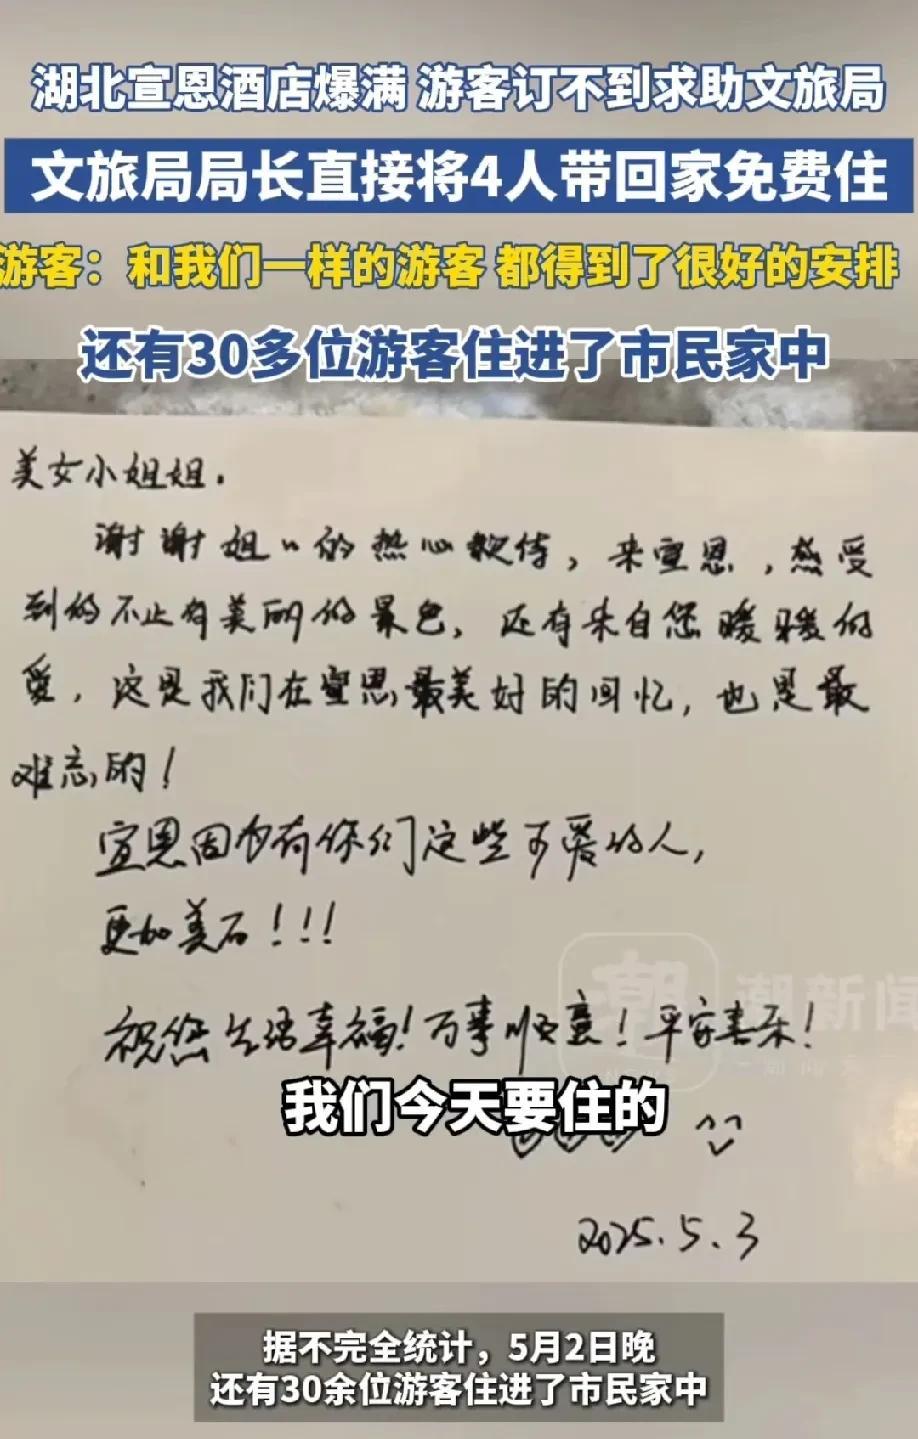 湖北宣恩酒店爆满 游客订不到求助文旅局
文旅局局长直接将4人带回家免费住
游客：和我们一样的游客 都得到了很好的安排
还有30多位游客住进了市民家中
美女小姐姐.
谢谢姐〃的热心款待，来宣恩，感受
到的不止有美丽的景色，还有来自您暖暖的
爱，这是我们在宣恩最美好的回忆，也是最
难忘的！
宣恩因为有你们这些可爱的人，
更加美好！！！
祝您生活幸福！万事顺意！平安喜乐！
潮新闻
我们今天要住的
2025.5.3
据不完全统计，5月2日晚
还有30余位游客住进了市民家中